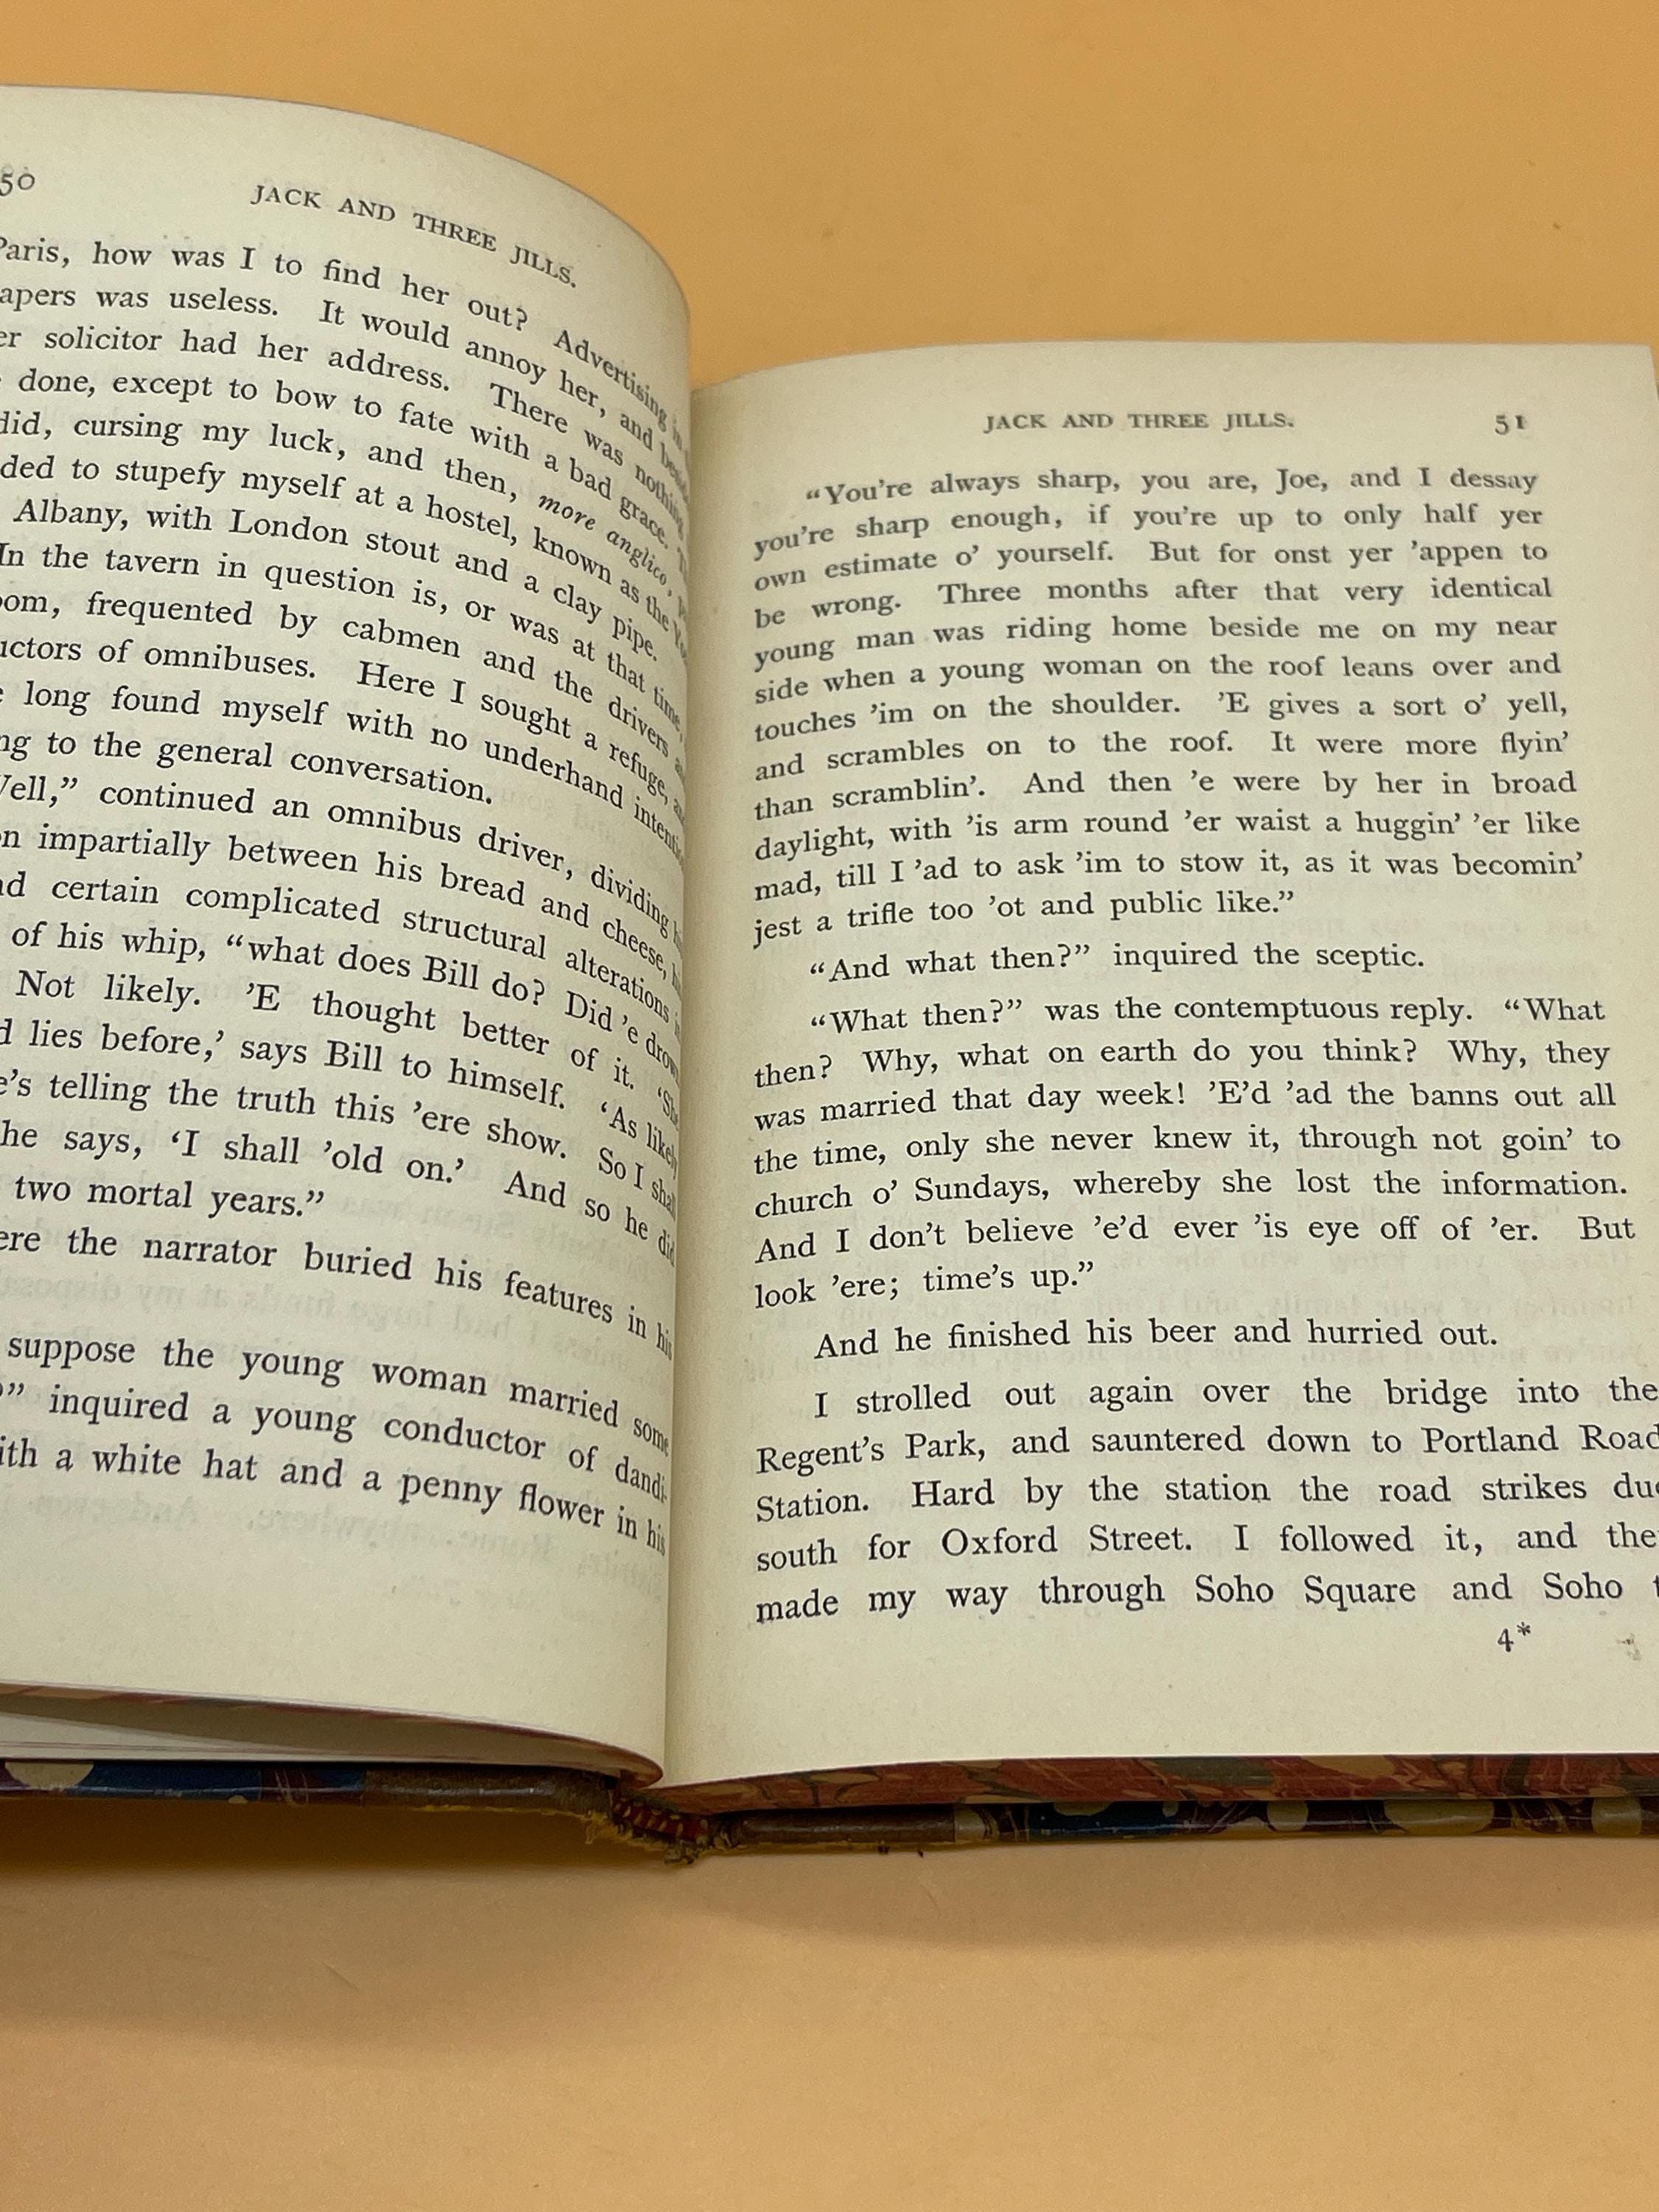 50
JACK AND THREE JILLS.
Paris, how was I to find her out? Advertising in
apers was useless. It would annoy her, and
er solicitor had her address. There was nothing
done, except to bow to fate with a bad grace.
did, cursing my luck, and then, more anglico,
ded to stupefy myself at a hostel, known as the
Albany, with London stout and a clay pipe.
In the tavern in question is, or was at that time,
oom, frequented by cabmen and the drivers
uctors of omnibuses. Here I sought a refuge,
long found myself with no underhand
ng to the general conversation.
Well," continued an omnibus driver, dividing
on impartially between his bread and cheese,
nd certain complicated structural alterations
of his whip, "what does Bill do? Did 'e
Not likely. 'E thought better of it. 'She
d lies before,' says Bill to himself. 'As likely
e's telling the truth this 'ere show. So I shall
he says, 'I shall 'old on.' And so he did
two mortal years."
ere the narrator buried his features in his
suppose the young woman married some
" inquired a young conductor of dandi-
ith a white hat and a penny flower in his
JACK AND THREE JILLS.
51
"You're always sharp, you are, Joe, and I dessay
you're sharp enough, if you're up to only half yer
own estimate o' yourself. But for onst yer 'appen to
be wrong. Three months after that very identical
young man was riding home beside me on my near
side when a young woman on the roof leans over and
touches 'im on the shoulder. 'E gives a sort o' yell,
and scrambles on to the roof. It were more flyin'
than scramblin'. And then 'e were by her in broad
daylight, with 'is arm round 'er waist a huggin' 'er like
mad, till I 'ad to ask 'im to stow it, as it was becomin'
jest a trifle too 'ot and public like."
"And what then?" inquired the sceptic.
"What then?" was the contemptuous reply. "What
then? Why, what on earth do you think? Why, they
was married that day week! 'E'd 'ad the banns out all
the time, only she never knew it, through not goin' to
church o' Sundays, whereby she lost the information.
And I don't believe 'e'd ever 'is eye off of 'er. But
look 'ere; time's up."
And he finished his beer and hurried out.
I strolled out again over the bridge into the
Regent's Park, and sauntered down to Portland Road
Station. Hard by the station the road strikes du
south for Oxford Street. I followed it, and the
made my way through Soho Square and Soho t
4*